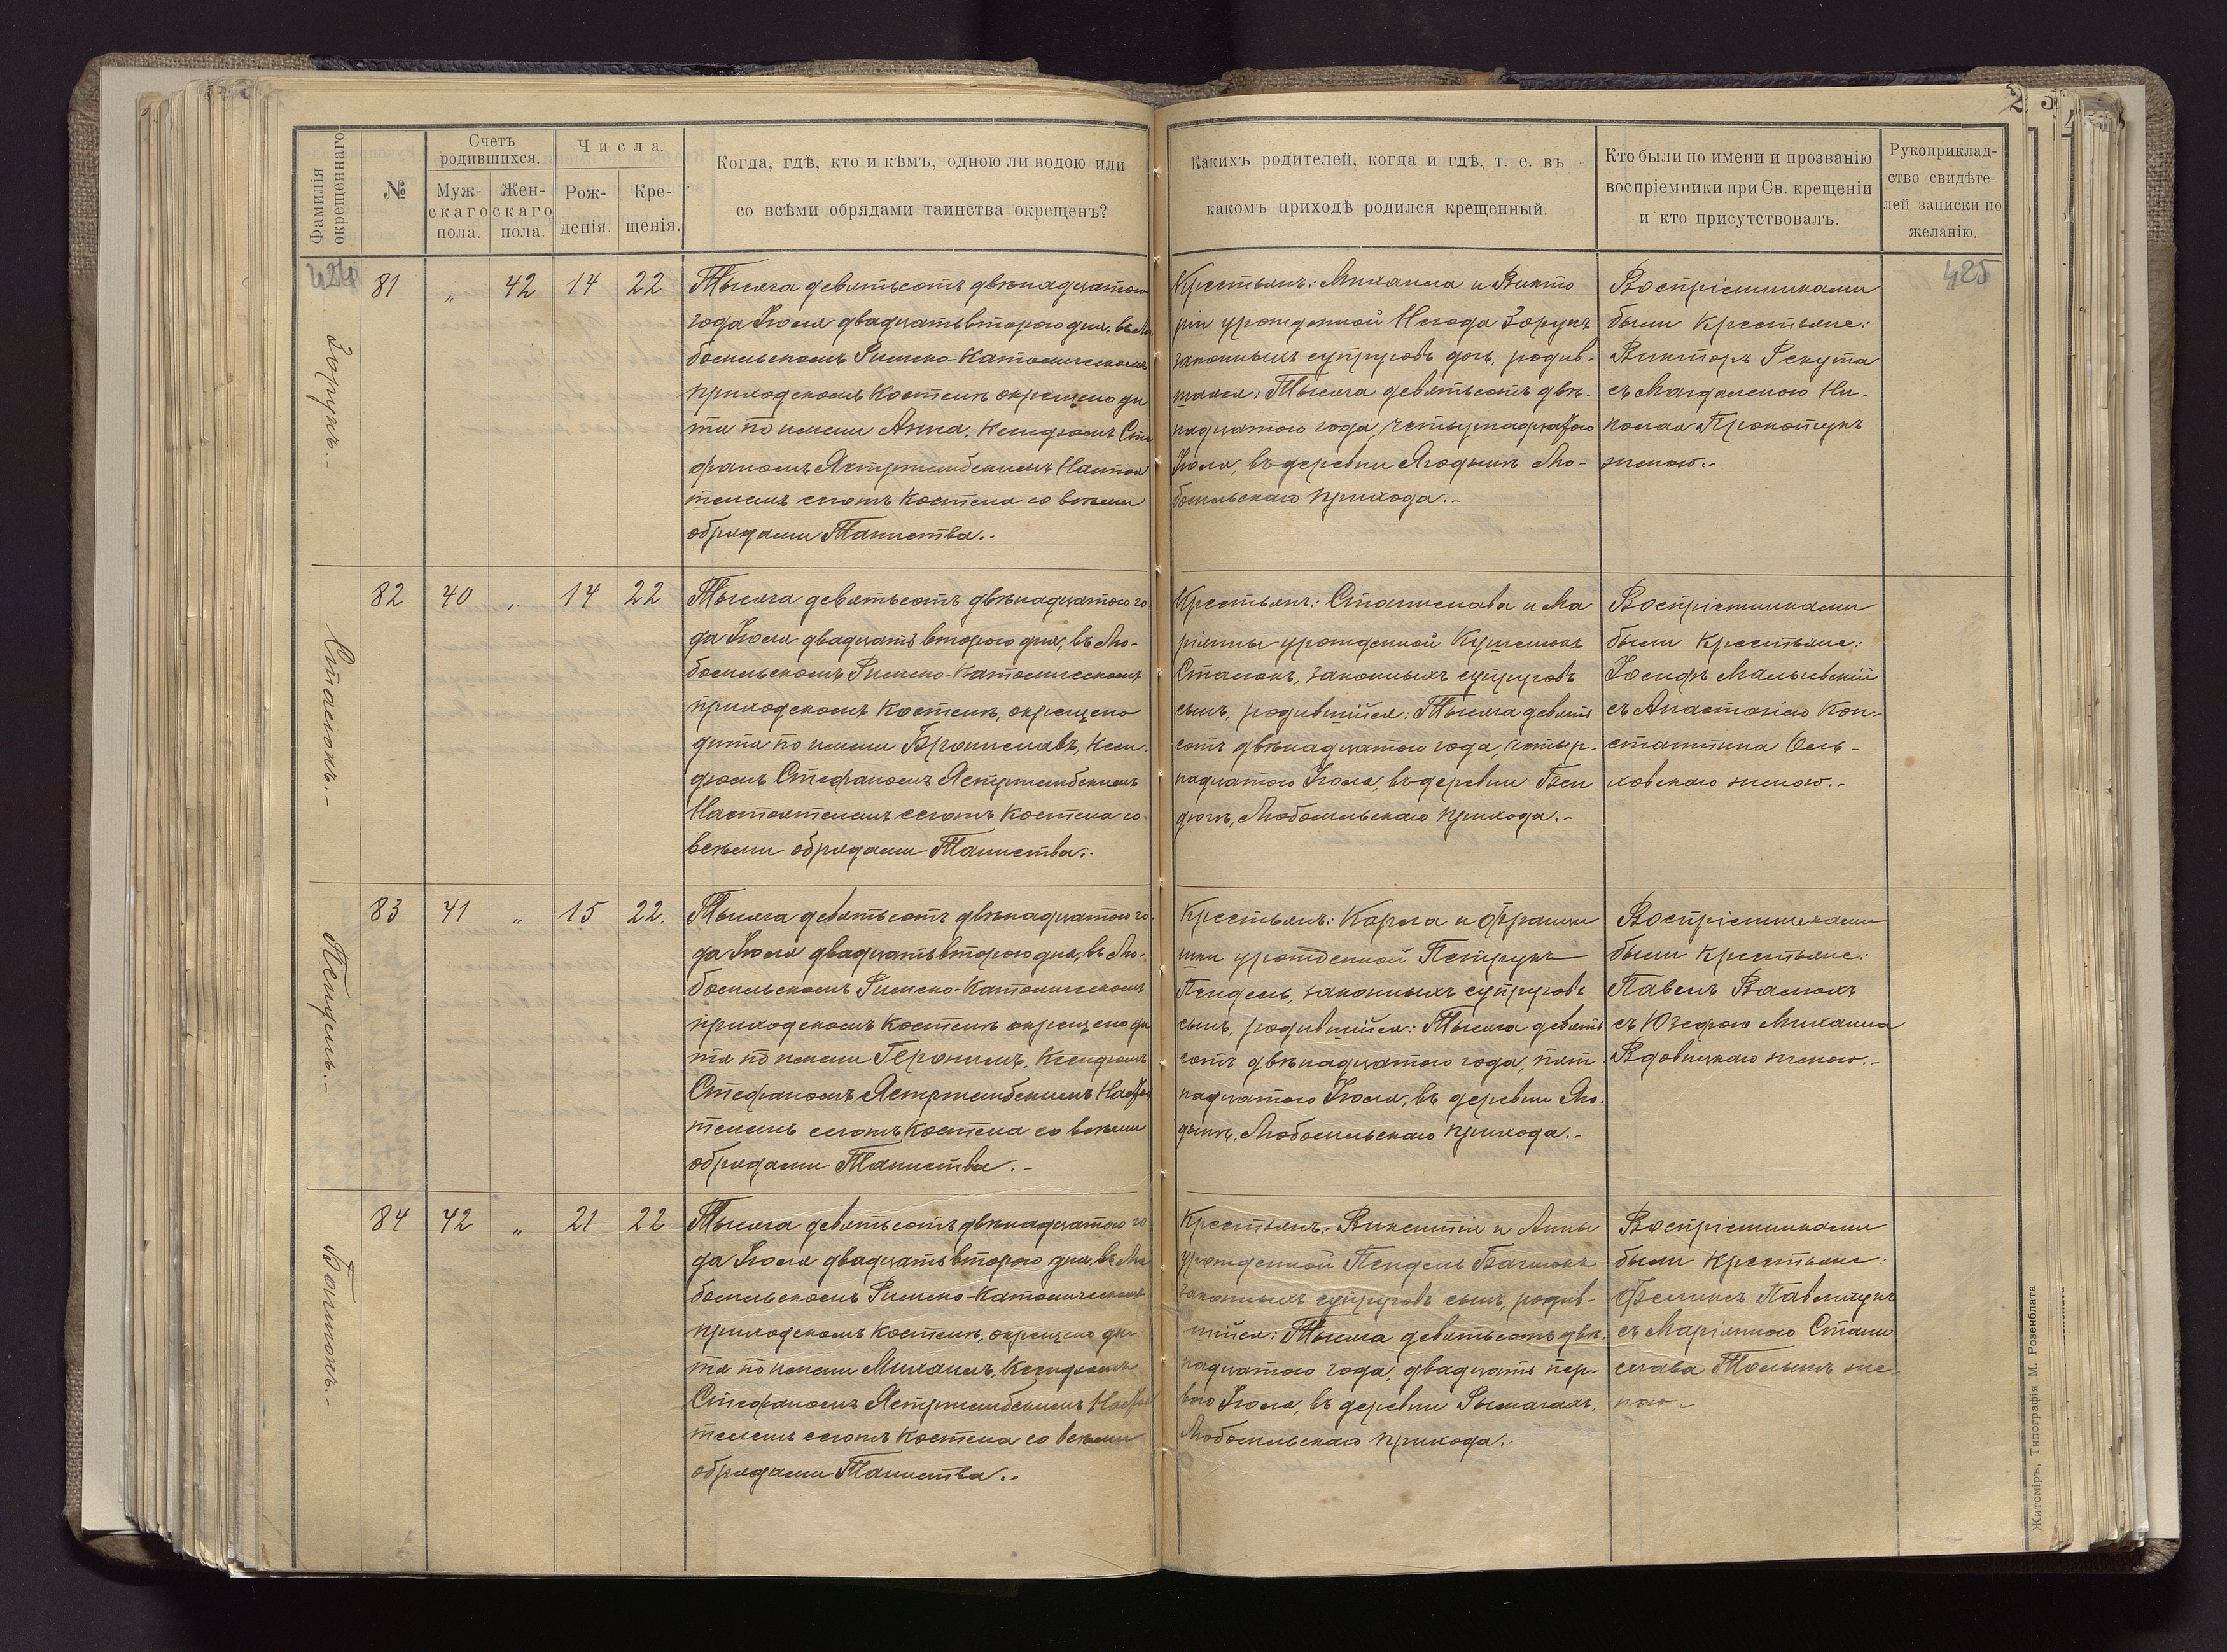 Фамилія окрещеннаго
№
Счетъ родившихся.
Муж-
скаго
пола.
Жен-
скаго
пола.
Числа.
Рож-
денія.
Кре-
щенія.
Когда, гдѣ, кто и кѣмъ, одною ли водою или
со всѣми обрядами таинства окрещенъ?
Какихъ родителей, когда и гдѣ, т. е. въ
какомъ приходѣ родился крещенный.
Кто были по имени и прозванію
воспріемники при Св. крещеніи
и кто присутствовалъ.
Рукоприклад-
ство свидѣте-
лей записки по
желанію.
424
425
Зорукъ.-
81 „ 42 14 22
Тысяча девятьсотъ двѣнадцатаго
года Іюля двадцать второго дня, въ Лю
бомльскомъ Римско-Католическомъ
приходскомъ Костелѣ окрещено ди
тя по имени Анна, Ксендзомъ Сте
фаномъ Ястржембскимъ Настоя
телемъ сегожъ Костела со всѣми
обрядами Таинства.-
Крестьянъ: Михаила и Викто
ріи урожденной Негода Зорукъ
законныхъ супруговъ дочь, родив-
шаяся: Тысяча девятьсотъ двѣ-
надцатого года, четырнадцатого
Іюля, въ деревни Ягодынѣ Лю-
бомльскаго прихода.-
Воспріемниками
были Крестьяне:
Викторъ Рекута
съ Магдаленою Ни-
колая Прокопукъ
женою.-
Сталюкъ.-
82 40 „ 14 22
Тысяча девятьсотъ двѣнадцатого го
да Іюля двадцать второго дня, въ Лю-
бомльскомъ Римско-Католическомъ
приходскомъ Костелѣ, окрещено
дитя по имени Брониславъ, Ксен-
дзомъ Стефаномъ Ястржембскимъ
Настоятелемъ сегожъ Костела со
всѣми обрядами Таинства.-
Крестьянъ: Станислава и Ма
ріянны урожденной
Сталюкъ, законныхъ супруговъ
сынъ, родившійся: Тысяча девять
сотъ двѣнадцатого года, четыр-
надцатого Іюля, въ деревни Бен
дюгѣ, Любомльскаго прихода.-
Воспріемниками
были Крестьяне:
Іосифъ Малиевскій
съ Анастасіею Кон-
стантина Оль-
ховскаго женою.-
Пендель.-
83 41 „ 15 22.
Тысяча девятьсотъ двѣнадцатого го
да Іюля двадцать второго дня, въ Лю-
бомльскомъ Римско-Католическомъ
приходскомъ Костелѣ окрещено ди
тя по имени Геронимъ, Ксендзомъ
Стефаномъ Ястржембскимъ Настоя
телемъ сегожъ Костела со всѣми
обрядами Таинства.-
Крестьянъ: Карла и Франци
шки урожденной Петрукъ
Пендель, законныхъ супруговъ
сынъ, родившійся: Тысяча девять
сотъ двѣнадцатого года, пят-
надцатого Іюля, въ деревни Яго-
дынѣ, Любомльскаго прихода.-
Воспріемниками
были Крестьяне:
Павелъ
съ Юзефою Михаила
Вдовицкаго женою.-
84 42 „ 21 22
Тысяча девятьсотъ двѣнадцатого го
да Іюля двадцать второго дня, въ Лю
бомльскомъ Римско-Католическомъ
приходскомъ Костелѣ, окрещено ди-
тя по имени Михаилъ, Ксендзомъ
Стефаномъ Ястржембскимъ Настоя
телемъ сегожъ Костела со всѣми
обрядами Таинства.-
Крестьянъ: Викентія и Анны
урожденной Пендель
законныхъ супруговъ сынъ, родив-
шійся: Тысяча девятьсотъ двѣ-
надцатого года, двадцать пер-
вого Іюля, въ деревни Рымачахъ,
Любомльскаго прихода.-
Воспріемниками
были Крестьяне:
Феликсъ Павлищукъ
съ Маріянною Стани
слава же-
ною.-
Житоміръ, Типографія М. Розенблата